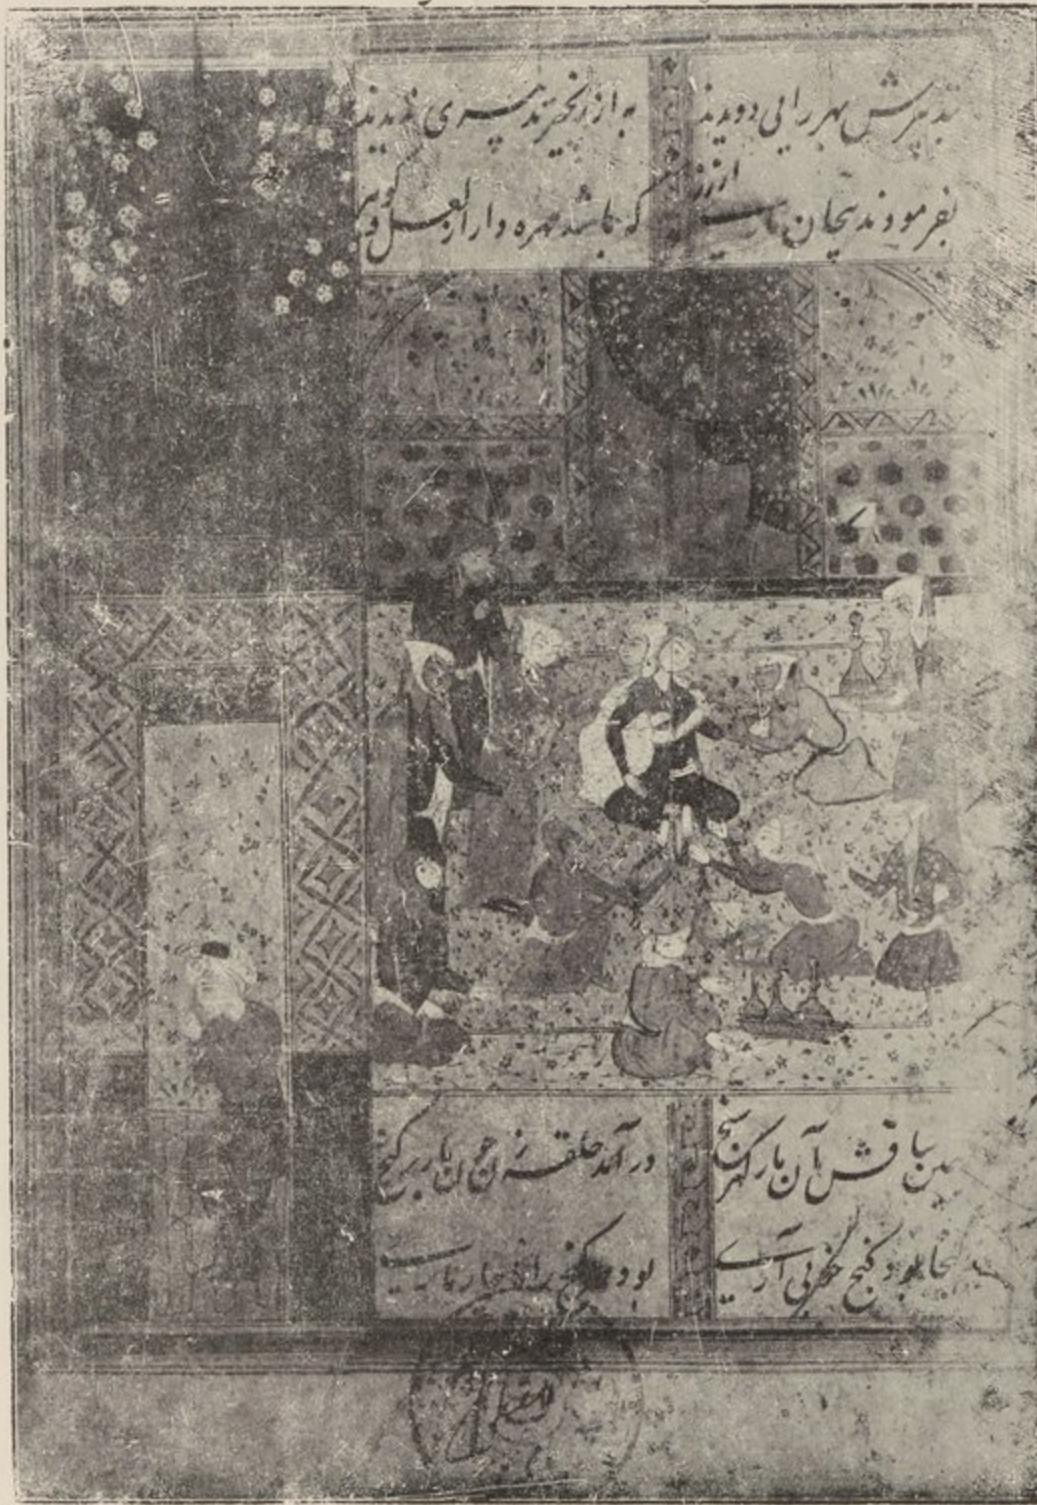 بتدبیرش بهر رایی دویدند به از زنجیر تدبیری ندیدند
بفرمودند پیچان ماری از زر که باشد مهره دار از لعل و گوهر
سیمین ساقش آن مار گهر سنج در آمد حلقه زن چون مار بر گنج
لیخا بود گنج خوبی آری بود هر گنج را ناچار ماری